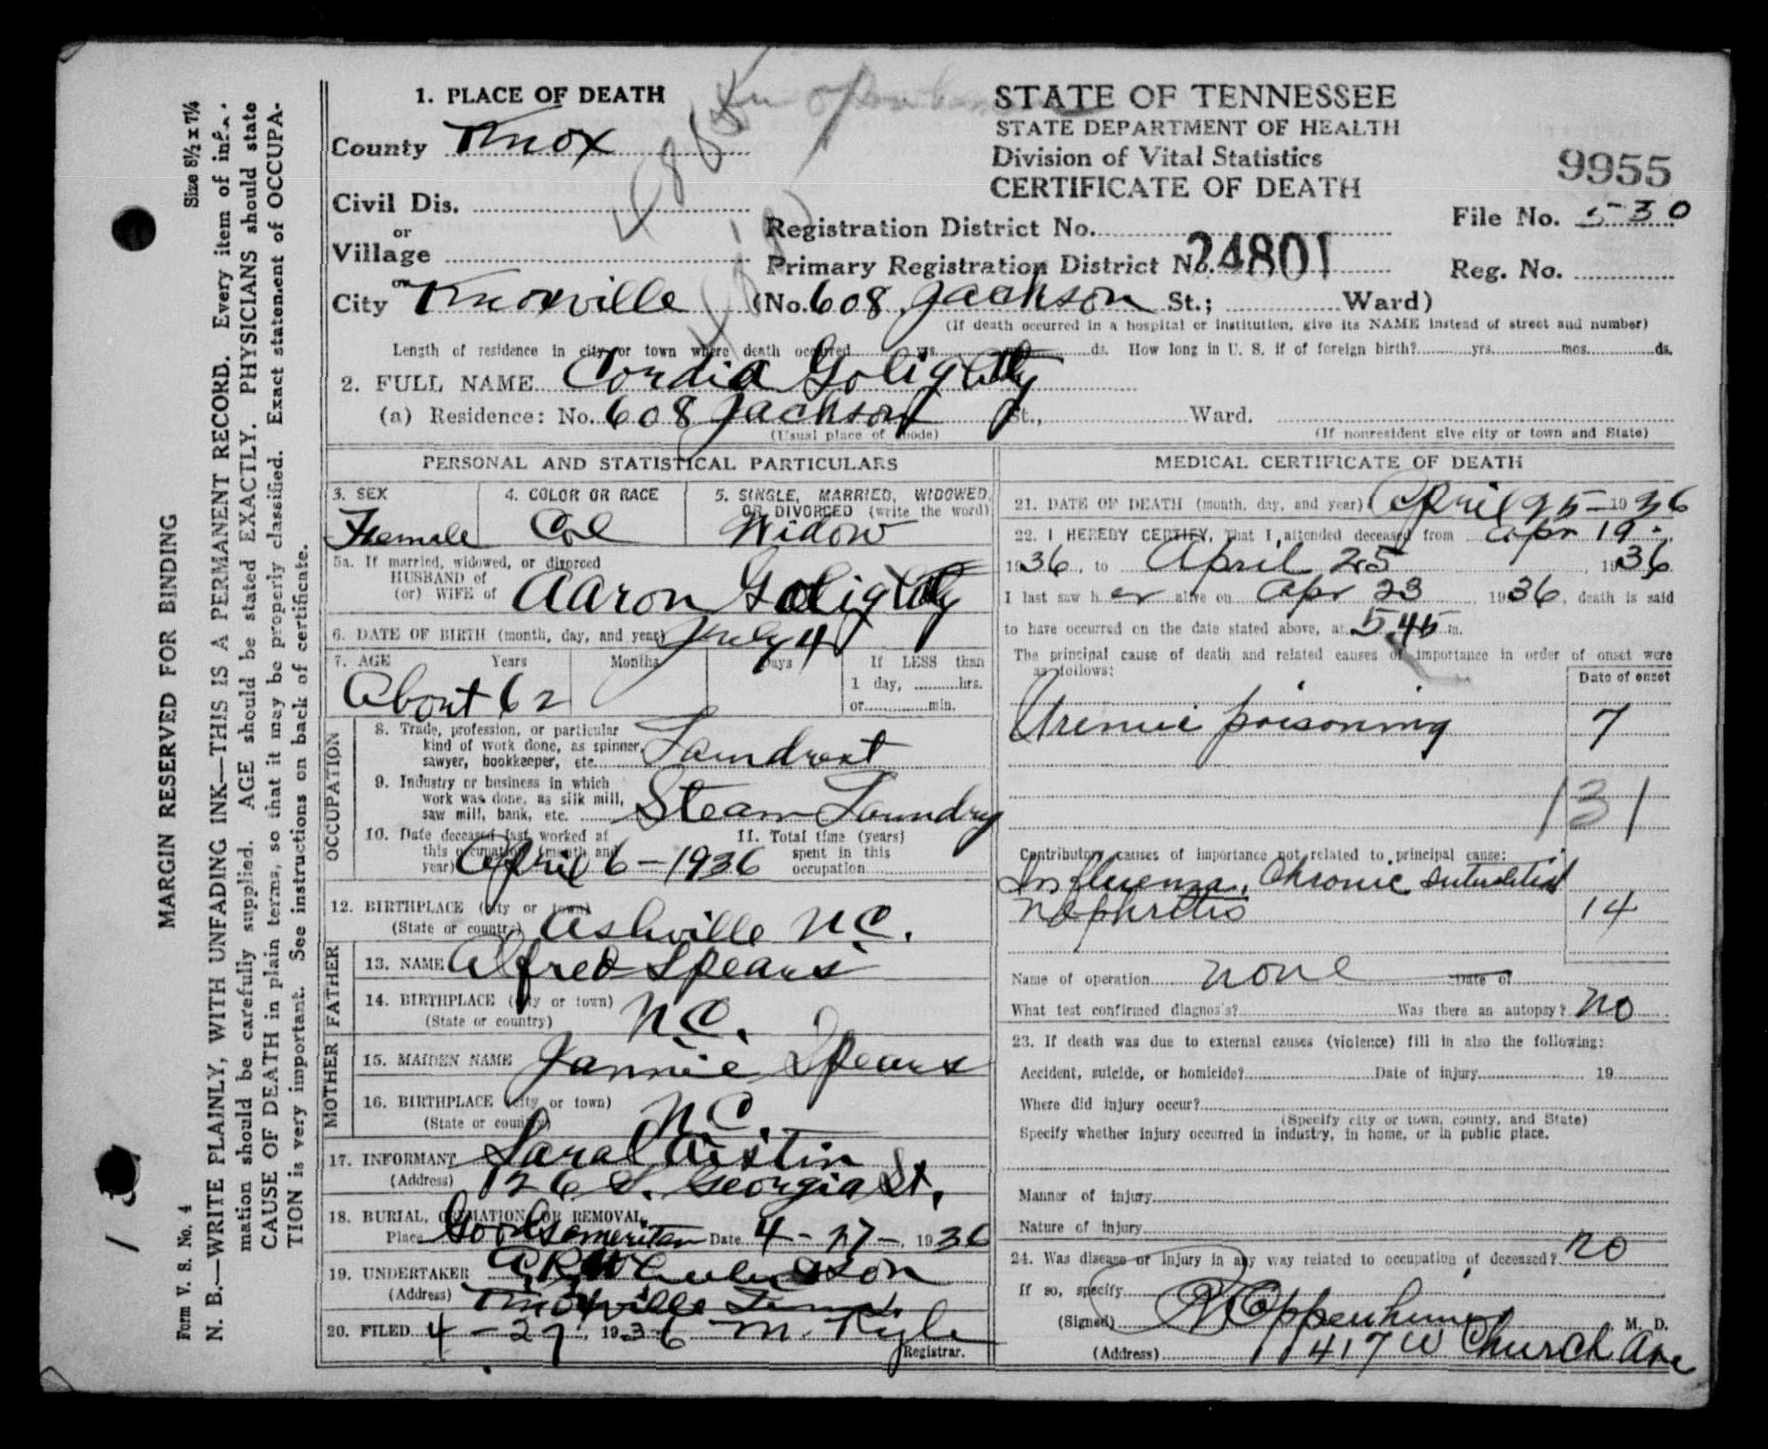 Size 8½ x 7¼
MARGIN RESERVED FOR BINDING
Form V. S. No. 4
N. B.—WRITE PLAINLY, WITH UNFADING INK—THIS IS A PERMANENT RECORD. Every item of infor-
mation should be carefully supplied. AGE should be stated EXACTLY. PHYSICIANS should state
CAUSE OF DEATH in plain terms, so that it may be properly classified. Exact statement of OCCUPA-
TION is very important. See instructions on back of certificate.
1. PLACE OF DEATH
County Knox
Civil Dis.
or
Village
or
City Knoxville (No. 608 Jackson St.; Ward)
STATE OF TENNESSEE
STATE DEPARTMENT OF HEALTH
Division of Vital Statistics
CERTIFICATE OF DEATH
9955
Registration District No.
File No. 530
Primary Registration District No. 24801
Reg. No.
(If death occurred in a hospital or institution, give its NAME instead of street and number)
Length of residence in city or town where death occurred yrs. ds. How long in U. S. if of foreign birth? yrs. mos. ds.
2. FULL NAME Cordia Golightly
(a) Residence: No. 608 Jackson St., Ward.
(Usual place of abode) (If nonresident give city or town and State)
PERSONAL AND STATISTICAL PARTICULARS
3. SEX Female
4. COLOR OR RACE Col
5. SINGLE, MARRIED, WIDOWED, OR DIVORCED (write the word) Widow
5a. If married, widowed, or divorced
HUSBAND of
(or) WIFE of Aaron Golightly
6. DATE OF BIRTH (month, day, and year) July 4
7. AGE Years Months Days If LESS than
1 day, hrs.
or min.
About 62
OCCUPATION
8. Trade, profession, or particular
kind of work done, as spinner,
sawyer, bookkeeper, etc. Laundrest
9. Industry or business in which
work was done, as silk mill,
saw mill, bank, etc. Steam Laundry
10. Date deceased last worked at
this occupation (month and
year) April 6-1936
11. Total time (years)
spent in this
occupation
12. BIRTHPLACE (city or town)
(State or country) Ashville N.C.
FATHER
13. NAME Alfred Spears
14. BIRTHPLACE (city or town)
(State or country) N.C.
MOTHER
15. MAIDEN NAME Jannie Spears
16. BIRTHPLACE (city or town)
(State or country) N.C.
17. INFORMANT Sarah
(Address) 126 S. Georgia St.
18. BURIAL, CREMATION, OR REMOVAL
Place Good Sameritan Date 4-27-, 1936
19. UNDERTAKER
(Address) Knoxville Tenn.
20. FILED 4-27, 1936 M. Kyle
Registrar.
MEDICAL CERTIFICATE OF DEATH
21. DATE OF DEATH (month, day, and year) April 25-1936
22. I HEREBY CERTIFY, That I attended deceased from Apr 19
1936, to April 25, 1936
I last saw her alive on Apr 23, 1936, death is said
to have occurred on the date stated above, at 5 45 m.
The principal cause of death and related causes of importance in order of onset were
as follows:
Date of onset
Uremic poisoning 7
131
Contributory causes of importance not related to principal cause:
Influenza, Chronic
Nephritis 14
Name of operation none Date of
What test confirmed diagnosis? Was there an autopsy? no
23. If death was due to external causes (violence) fill in also the following:
Accident, suicide, or homicide? Date of injury 19
Where did injury occur?
(Specify city or town, county, and State)
Specify whether injury occurred in industry, in home, or in public place.
Manner of injury
Nature of injury
24. Was disease or injury in any way related to occupation of deceased? no
If so, specify
(Signed) Oppenheimer M. D.
(Address) 417 W Church Ave